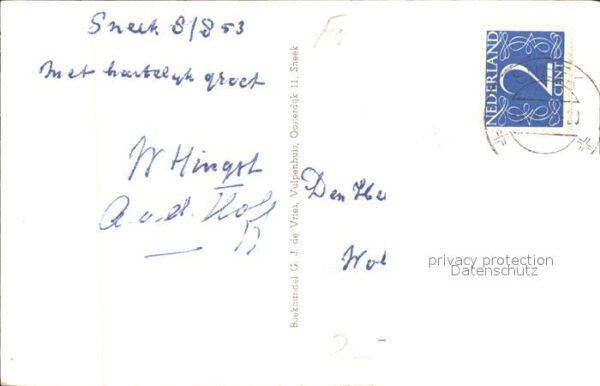 Sneek 8/8 53
Met hartelijk groet
W Hingst
A. v. d. Hoff
Boekhandel G. J. de Vries, Vulpenhuis, Oosterdijk 11, Sneek
NEDERLAND
2
CENT
Den He
Wol
privacy protection
Datenschutz